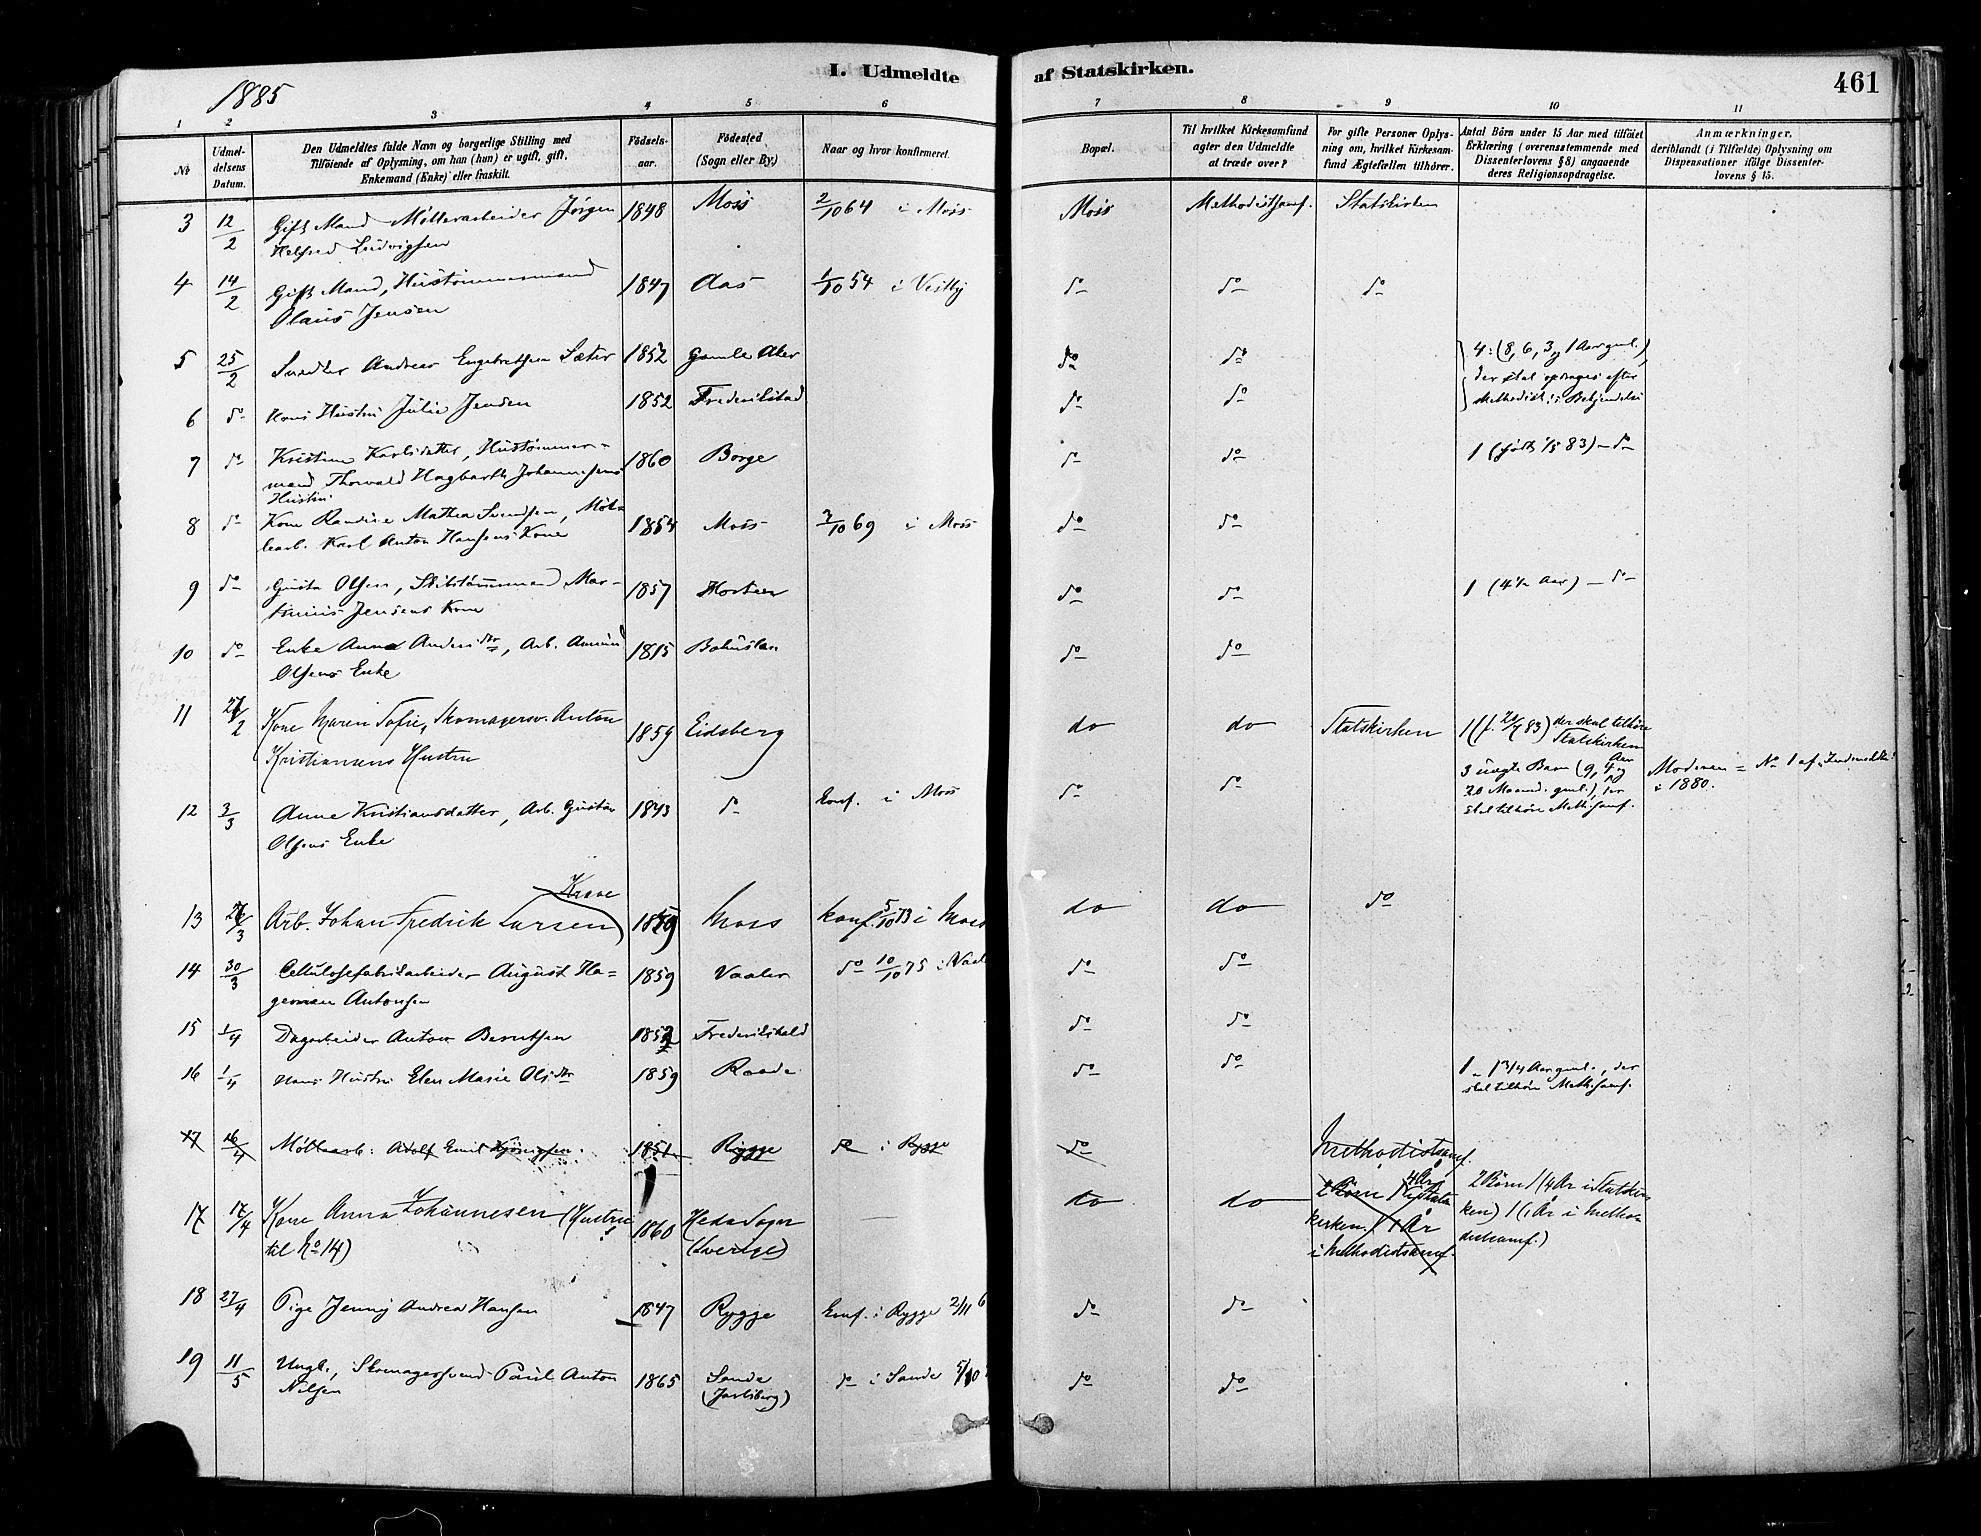 1885
I. Udmeldte af Statskirken.
461
1 2 3 4 5 6 7 8 9 10 11
№
Udmel-
delsens
Datum.
Den Udmeldtes fulde Navn og borgerlige Stilling med
Tilføiende af Oplysning, om han (hun) er ugift, gift,
Enkemand (Enke) eller fraskilt.
Fødsels-
aar.
Fødested
(Sogn eller By.)
Naar og hvor konfirmeret.
Bopæl.
Til hvilket Kirkesamfund
agter den Udmeldte
at træde over?
For gifte Personer Oplys-
ning om, hvilket Kirkesam-
fund Ægtefællen tilhører.
Antal Börn under 15 Aar med tilføiet
Erklæring (overensstemmende med
Dissenterlovens § 8) angaaende
deres Religionsopdragelse.
Anmærkninger,
deriblandt (i Tilfælde) Oplysning om
Dispensationer ifölge Dissenter-
lovens § 15.
3 12/2 Gift Mand Møllerarbeider Jørgen 1848 Moss 2/10 64 i Moss Moss Methodistsamf. Statskirken
Helfred Ludvigsen
4 14/2 Gift Mand, Hustømmermand 1847 Aas 1/10 54 i Vestby do do do
Olaus Jensen
5 25/2 Snedker Andreas Engebretsen Sæter 1852 Gamle Aker do do 4: (8, 6, 3, 1 Aar gml.),
der skal opdrages efter
6 do Hans Hustru Julie Jensen 1852 Frederikstad do do Methodist. Bekjendelse
7 do Kristine Karlsdatter, Hustømmer- 1860 Borge do do 1 (født 1/5 83) – do
mand Thorvald Hagbarth Johannesens
Hustru
8 do Kone Randine Mathea Svendsen, Mølle 1854 Moss 3/10 69 i Moss do do
arb. Karl Anton Hansens Kone
9 do Gusta Olsen, Skibstømmermand Mar- 1857 Horten do do 1 (4 1/2 Aar) – do
tinius Jensens Kone
10 do Enke Anna Andersdtr, Arb. Amund 1815 Bohuslan do do
Olsens Enke
11 27/2 Kone Maren Sofie, Skomagersv. Anton 1859 Eidsberg do do Statskirken 1 (f. 20/4 83) der skal tilhøre
Statskirken
Kristiansens Hustru
12 3/3 Anne Kristiansdatter, Arb. Gustav 1843 do Konf. i Moss do do 3 uægte Børn (9, 4 og Moderen = No 1 af Indmeldte
20 Maaned. gml.), der i 1880.
skal tilhøre Meth.samf.
Olsens Enke
Krave
13 27/3 Arb. Johan Fredrik Larsen 1859 Moss konf. 5/10 73 i Moss do do do
14 30/3 Cellulosefabrikarbeider August Ha- 1859 Vaaler do 10/10 75 i Vaal do do
german Antonsen
15 1/4 Dagarbeider Anton Berntsen 1852 Frederikshald do do
16 1/4 Hans Hustru Elen Marie Olsdtr 1859 Raade do do 1 – 1 3/4 Aar gml., der
skal tilhøre Meth.samf.
17 16/4 Møllearb: Adolf Emil 1851 Rygge do i Rygge do Methodistsamf.
17 17/4 Kone Anna Johannesen (Hustru 1860 Heda Sogn do do 2 Børn 1 (4 År i Statskir
til No 14) (Sverige) kirken 1 1 År ken) 1 (1 År i Metho
i Methodistsamf. distsamf.)
18 27/4 Pige Jenny Andrea Hansen 1847 Rygge Konf. i Rygge 2/11 6 do do
19 11/5 Ungk., Skomagersvend Paul Anton 1865 Sande do i Sande 5/10 do do
Nilsen (Jarlsberg)